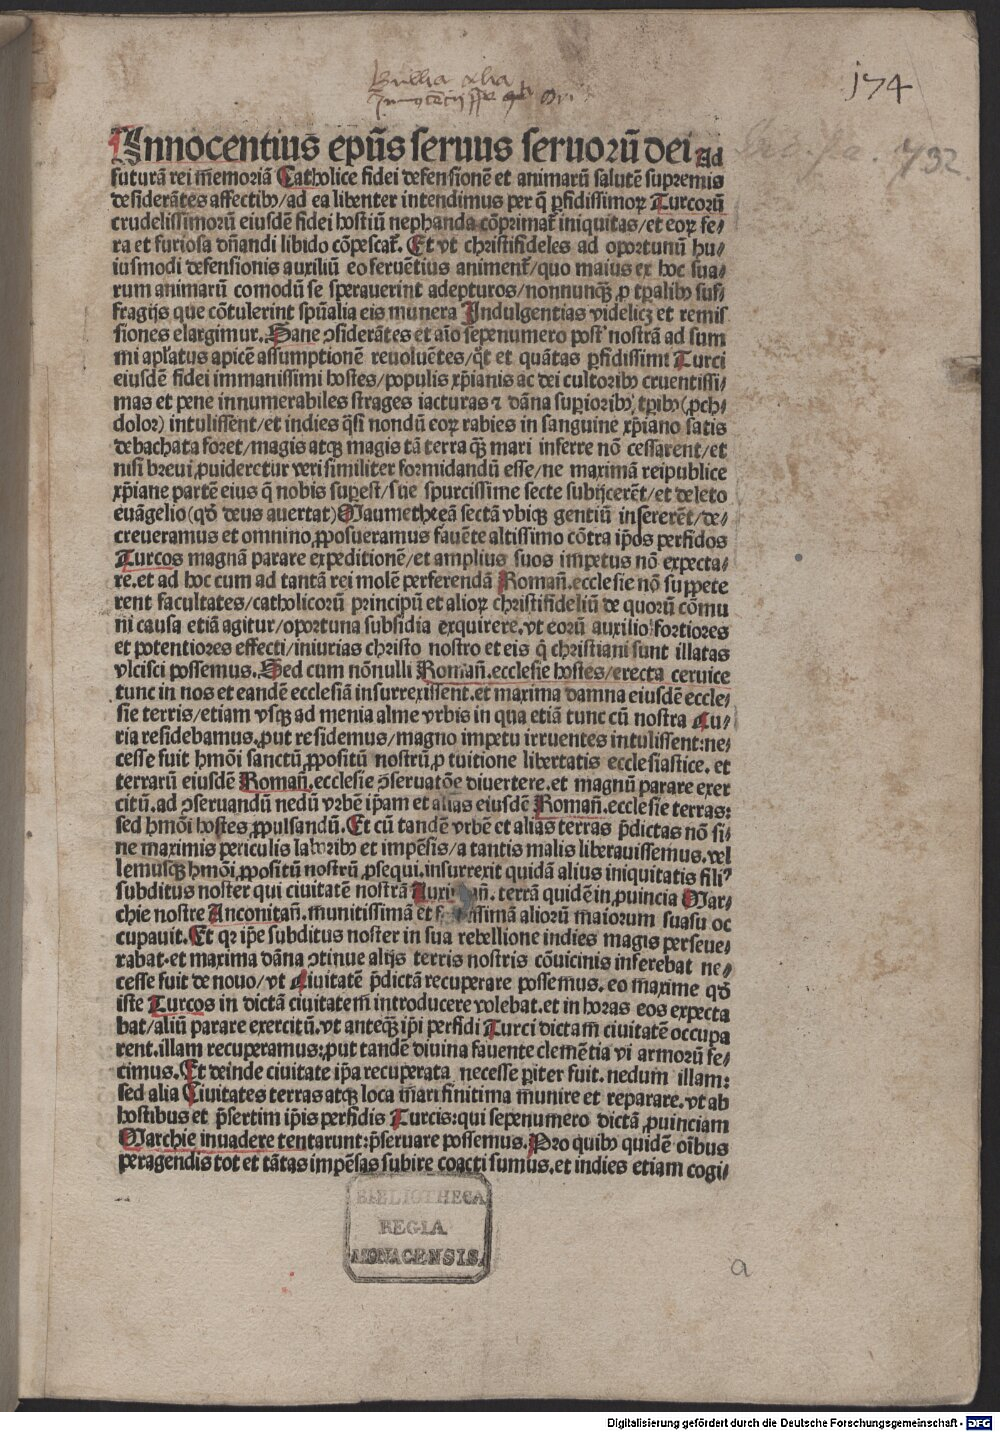 Bullia alia
Innocencij
174
732.
Innocentius ep̄us seruus seruoꝛū dei Ad
futurā rei memoꝛiā Catholice fidei defensionē et animarū salutē supremis
desiderātes affectibꝰ/ad ea libenter intendimus per q̄ ꝑfidissimoꝝ Turcoꝛū
crudelissimoꝛū eiusdē fidei hostiū nephanda cōprimat᷑ iniquitas/et eoꝝ fe⸗
ra et furiosa dn̄andi libido cōpescat᷑. Et vt christifideles ad opoꝛtunū hu⸗
iusmodi defensionis auxiliū eo feruētius animent᷑/quo maius ex hoc sua⸗
rum animarū comodū se sperauerint adepturos/nonnunqȝ̄ ꝓ tp̄alibꝰ suf⸗
fragijs que cōtulerint spūalia eis munera Indulgentias videlicꝫ et remis
siones elargimur. Sane ꝯsiderātes et aīo sepenumero post nostrā ad sum
mi apl̄atus apicē assumptionē reuoluētes/qꝫ et quātas ꝑfidissimi Turci
eiusdē fidei immanissimi hostes/populis xp̄ianis ac dei cultoribꝰ cruentissi⸗
mas et pene innumerabiles strages iacturas ⁊ dāna supioꝛibꝰ tꝑibꝰ(ꝓch⸗
doloꝛ) intulissent/et indies q̄si nondū eoꝝ rabies in sanguine xp̄iano satis
debachata foꝛet/magis atqꝫ magis tā terra qȝ̄ mari inferre nō cessarent/et
nisi breui ꝓuideretur verisimiliter foꝛmidandū esse/ne maximā reipublice
xp̄iane partē eius q̄ nobis supest/sue spurcissime secte subijcerēt/et deleto
euāgelio(qd̄ deus auertat)Maumetheā sectā vbiqꝫ gentiū insererēt/de⸗
creueramus et omnino ꝓposueramus fauēte altissimo cōtra ip̄os perfidos
Turcos magnā parare expeditionē/et amplius suos impetus nō expecta⸗
re.et ad hoc cum ad tantā rei molē perferendā Roman̄.ecclesie nō suppete
rent facultates/catholicoꝛū principū et alioꝝ christifideliū de quoꝛū cōmu
ni causa etiā agitur/opoꝛtuna subsidia exquirere.vt eoꝛū auxilio foꝛtioꝛes
et potentioꝛes effecti/iniurias christo nostro et eis q̄ christiani sunt illatas
vlcisci possemus. Sed cum nōnulli Roman̄.ecclesie hostes/erecta ceruice
tunc in nos et eandē ecclesiā insurrexissent.et maxima damna eiusdē eccle⸗
sie terris/etiam vsqꝫ ad menia alme vrbis in qua etiā tunc cū nostra Cu⸗
ria residebamus.ꝓut residemus/magno impetu irruentes intulissent:ne⸗
cesse fuit hm̄oi sanctū ꝓpositū nostrū ꝓ tuitione libertatis ecclesiastice. et
terrarū eiusdē Roman̄.ecclesie ꝯseruatōe diuertere.et magnū parare exer
citū.ad ꝯseruandū nedū vrbē ip̄am et alias eiusdē Roman̄.ecclesie terras:
sed hm̄oi hostes ꝓpulsandū. Et cū tandē vrbē et alias terras p̄dictas nō si⸗
ne maximis periculis laboꝛibꝰ et impēsis/a tantis malis liberauissemus.vel
lemusqꝫ hm̄oi ꝓpositū nostrū ꝓsequi.insurrexit quidā alius iniquitatis filiꝰ
subditus noster qui ciuitatē nostrā Auxi an̄. terrā quidē in ꝓuincia Mar⸗
chie nostre Anconitan̄.munitissimā et issimā alioꝛū maioꝛum suasu oc
cupauit. Et qꝛ ip̄e subditus noster in sua rebellione indies magis perseue⸗
rabat.et maxima dāna ꝯtinue alijs terris nostris cōuicinis inferebat ne⸗
cesse fuit de nouo/vt Ciuitatē p̄dictā recuperare possemus. eo maxime qd̄
iste Turcos in dictā ciuitatem introducere volebat.et in hoꝛas eos expecta
bat/aliū parare exercitū.vt anteqȝ̄ ip̄i perfidi Turci dictam ciuitatē occupa
rent.illam recuperamus:ꝓut tandē diuina fauente clemētia vi armoꝛū fe⸗
cimus. Et deinde ciuitate ip̄a recuperata necesse pariter fuit. nedum illam:
sed alia Ciuitates terras atqꝫ loca mari finitima munire et reparare.vt ab
hostibus et p̄sertim ip̄is perfidis Turcis:qui sepenumero dictā ꝓuinciam
Marchie inuadere tentarunt:p̄seruare possemus. Pro quibꝰ quidē oībus
peragendis tot et tātas impēsas subire coacti sumus.et indies etiam cogi⸗
BIBLIOTHECA
REGIA
MONACENSIS.
a
Digitalisierung gefördert durch die Deutsche Forschungsgemeinschaft - DFG